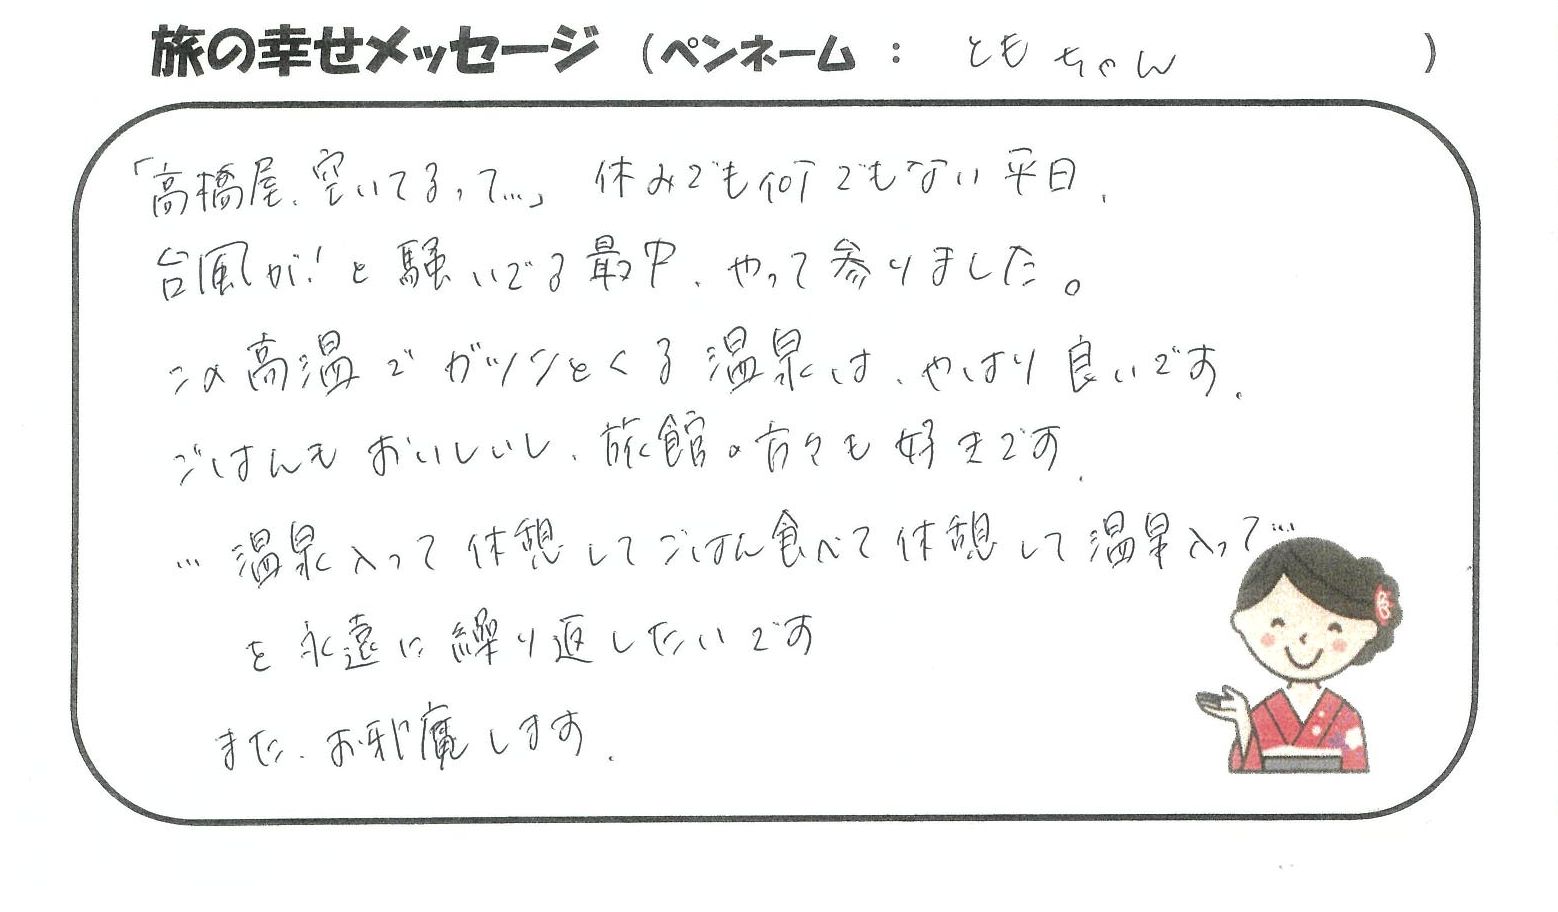 旅の幸せメッセージ (ペンネーム : ともちゃん )
「高橋屋、空いてるって…」 休みでも何でもない平日、
台風が！と騒いでる最中、やって参りました。
この高温でガツンとくる温泉は、やはり良いです。
ごはんもおいしいし、旅館の方々も好きです。
…温泉入って休憩してごはん食べて休憩して温泉入って…
を永遠に繰り返したいです
また、お邪魔します。